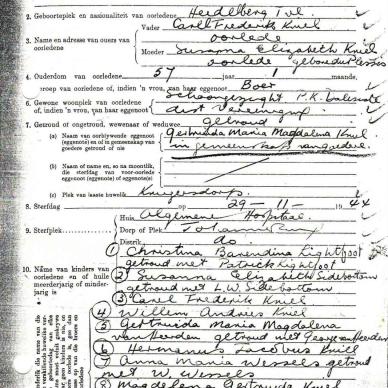 2. Geboorteplek en nasionaliteit van oorledene Heidelberg Tvl.
Vader Carel Frederik Kniel
3. Name en adresse van ouers van oorledene
oorlede
Moeder Susanna Elizabeth Kniel
oorlede gebore du Plessis
4. Ouderdom van oorledene 57 jaar 1 maande,
Beroep van oorledene of, indien 'n vrou, van haar eggenoot Boer
6. Gewone woonplek van oorledene of, indien 'n vrou, van haar eggenoot Schoongezight P.K.
dist Vereeniging
7. Getroud of ongetroud, wewenaar of weduwee getroud
(a) Naam van oorblywende eggenoot (eggenote) en of in gemeenskap van goedere getroud of nie
Gertruida Maria Magdalena Kniel
in gemeenskap van goedere
(b) Naam of name en, so na moontlik, die sterfdag van voor-oorlede eggenoot (eggenote) of eggenotes
(c) Plek van laaste huwelik Krugersdorp.
8. Sterfdag 29 - 11 - 1944
Huis Algemene Hospitaal
9. Sterfplek Dorp of Plek
Distrik do
10. Name van kinders van oorledene en of hulle meerderjarig of minderjarig is
1 Christina Barendina Lightfoot
getroud met Patrick Lightfoot
2 Susanna Elizabeth Sidebottom
getroud met L.W. Sidebottom
3 Carel Frederik Kniel
4 Willem Andries Kniel
5 Gertruida Maria Magdalena
van Heerden getroud met George van Heerden
6 Hermanus Jacobus Kniel
7 Anna Maria Wessels getroud
met W. Wessels
8 Magdalena Gertruida Kniel